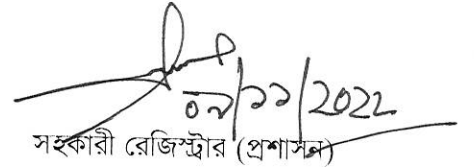 ০৯/১১/2022
সহকারী রেজিস্ট্রার (প্রশাসন)